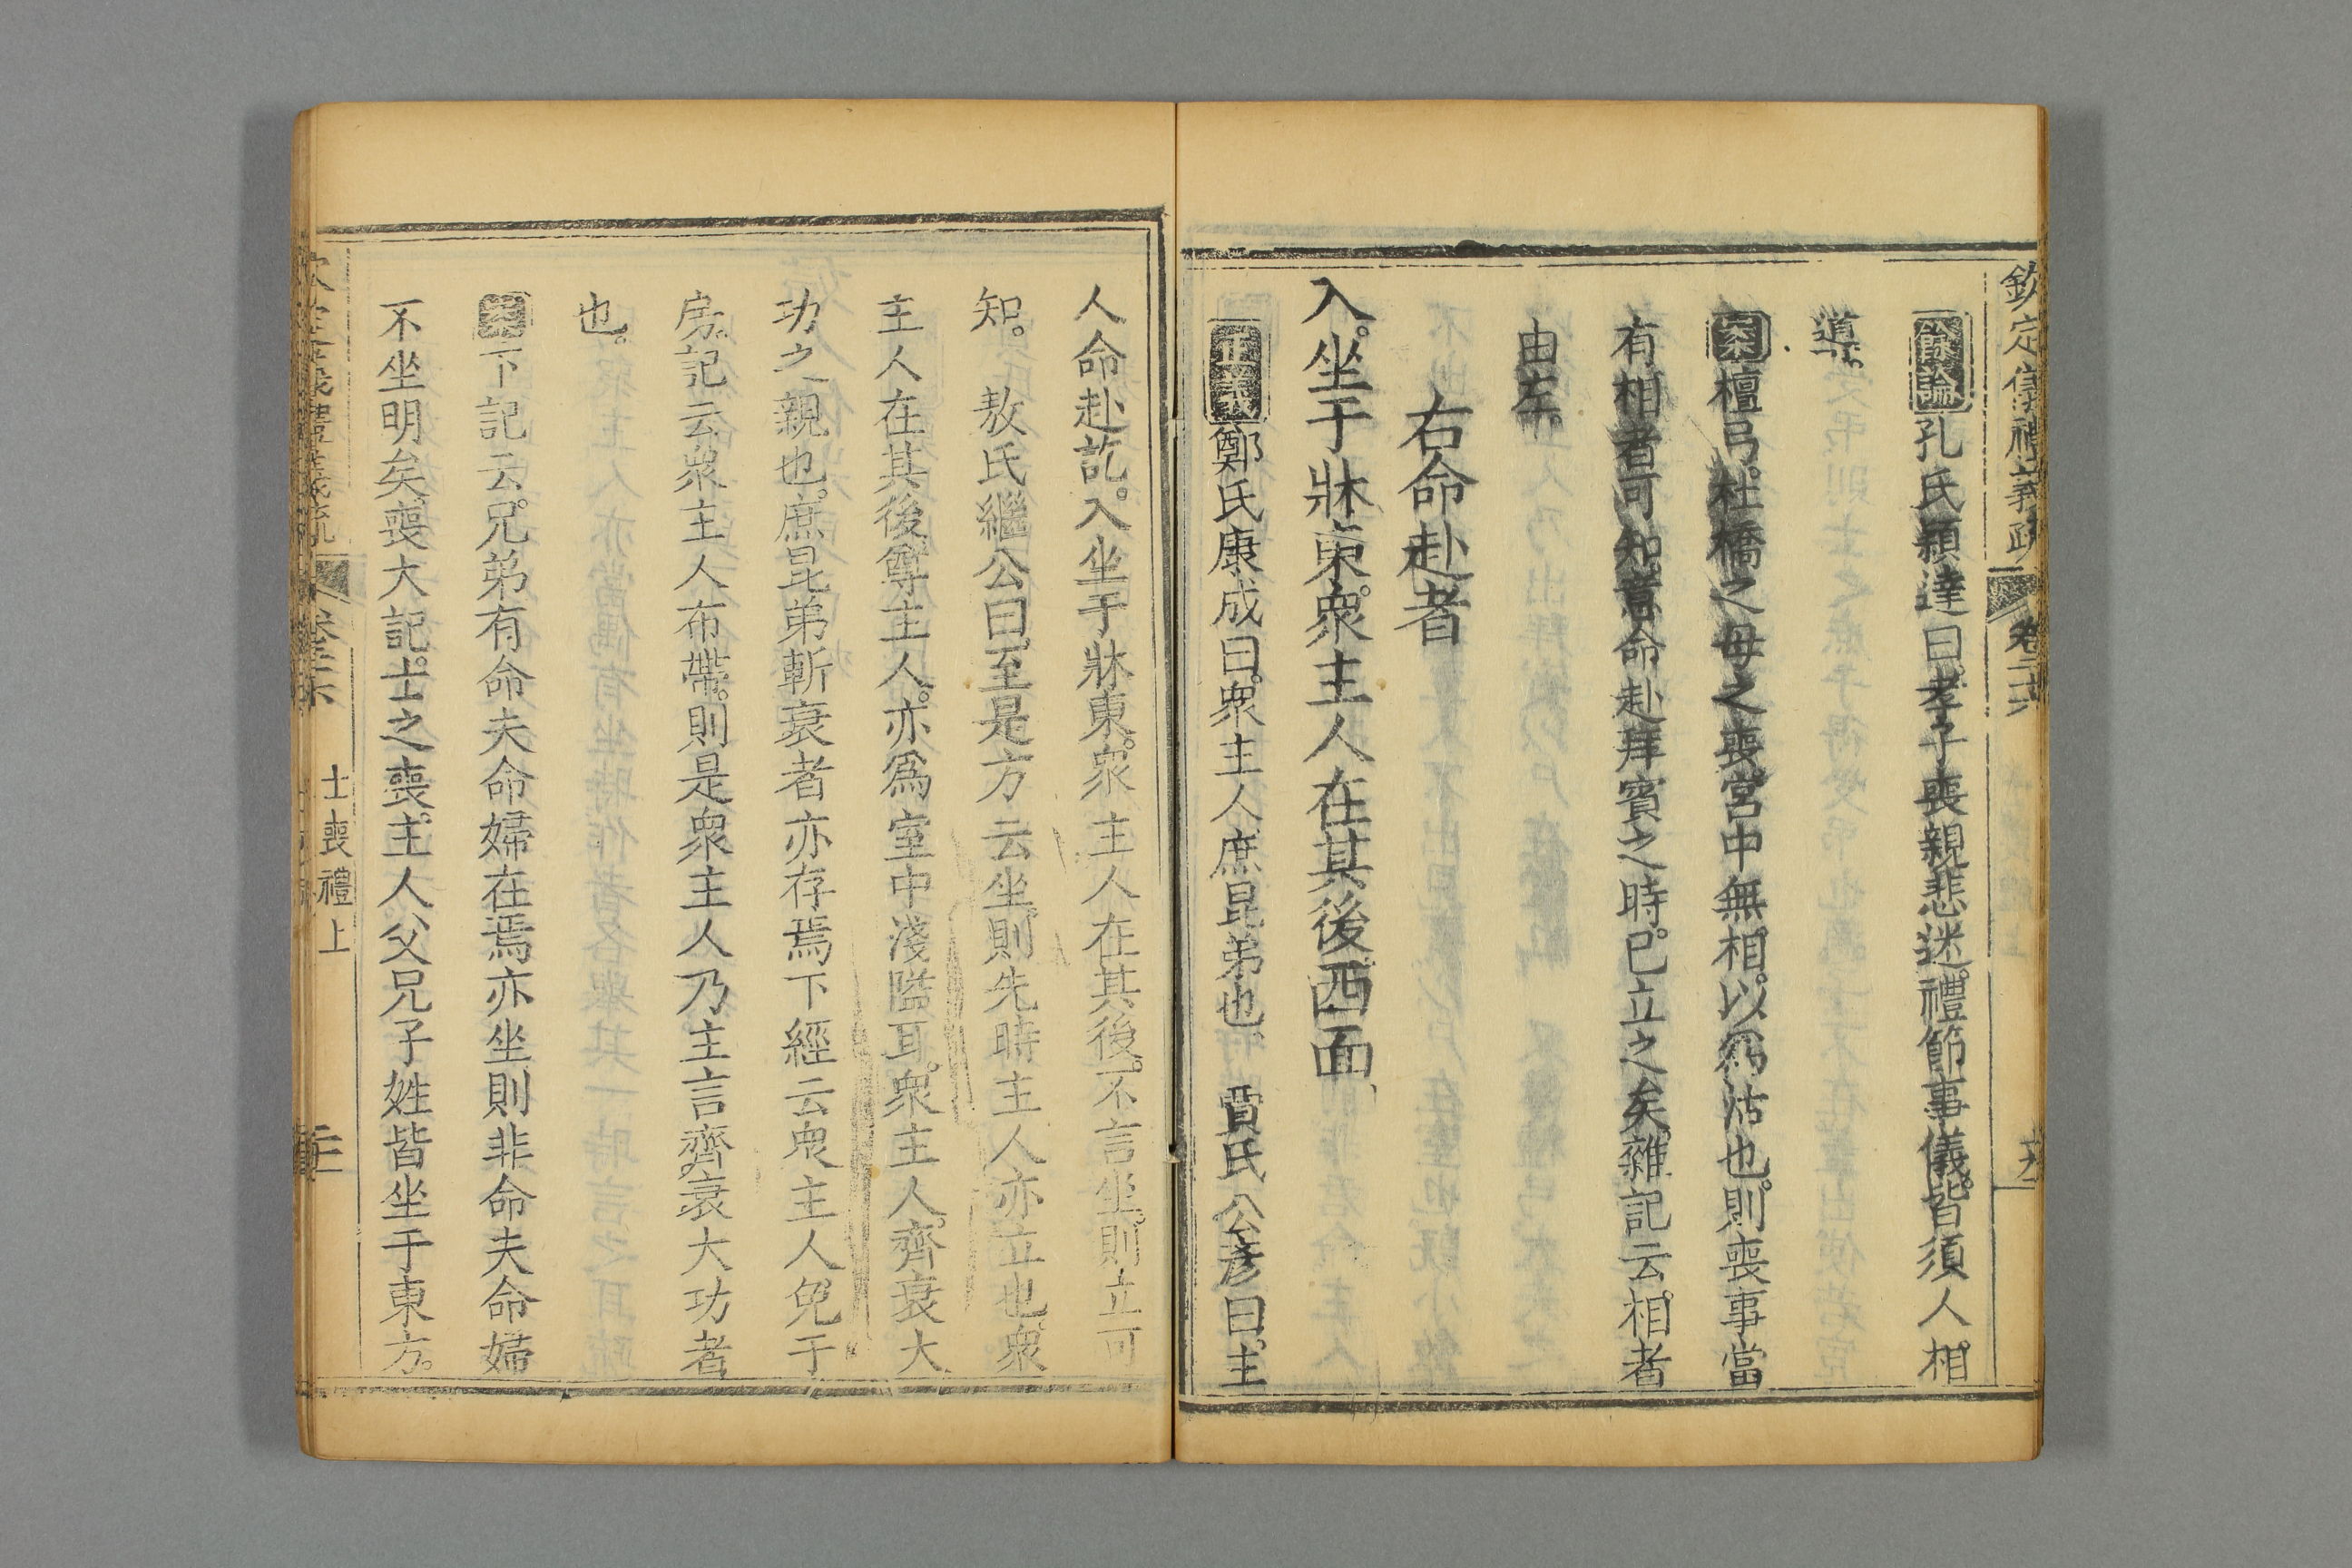 欽定儀禮義疏 卷二十六
餘論孔氏穎達曰孝子喪親悲迷禮節事儀皆須人相
導。
案檀弓杜橋之母之喪宮中無相以爲沽也則喪事當
有相者可知意命赴拜賓之時已立之矣雜記云相者
由左。
右命赴者
入。坐于牀東。衆主人在其後。西面、
正義鄭氏康成曰衆主人庶昆弟也、 賈氏公彥曰主
人命赴訖。入坐于牀東。衆主人在其後。不言坐。則立可
知。 敖氏繼公曰。至是方云坐則先時主人亦立也。衆
主人在其後尊主人。亦爲室中淺隘耳。衆主人。齊衰大
功之親也。庶昆弟斬衰者亦存焉下經云衆主人免于
房。記云衆主人布帶。則是衆主人乃主言齊衰大功者
也。
案下記云。兄弟有命夫命婦在焉亦坐則非命夫命婦
不坐明矣。喪大記。士之喪。主人父兄子姓皆坐于東方。
士喪禮上